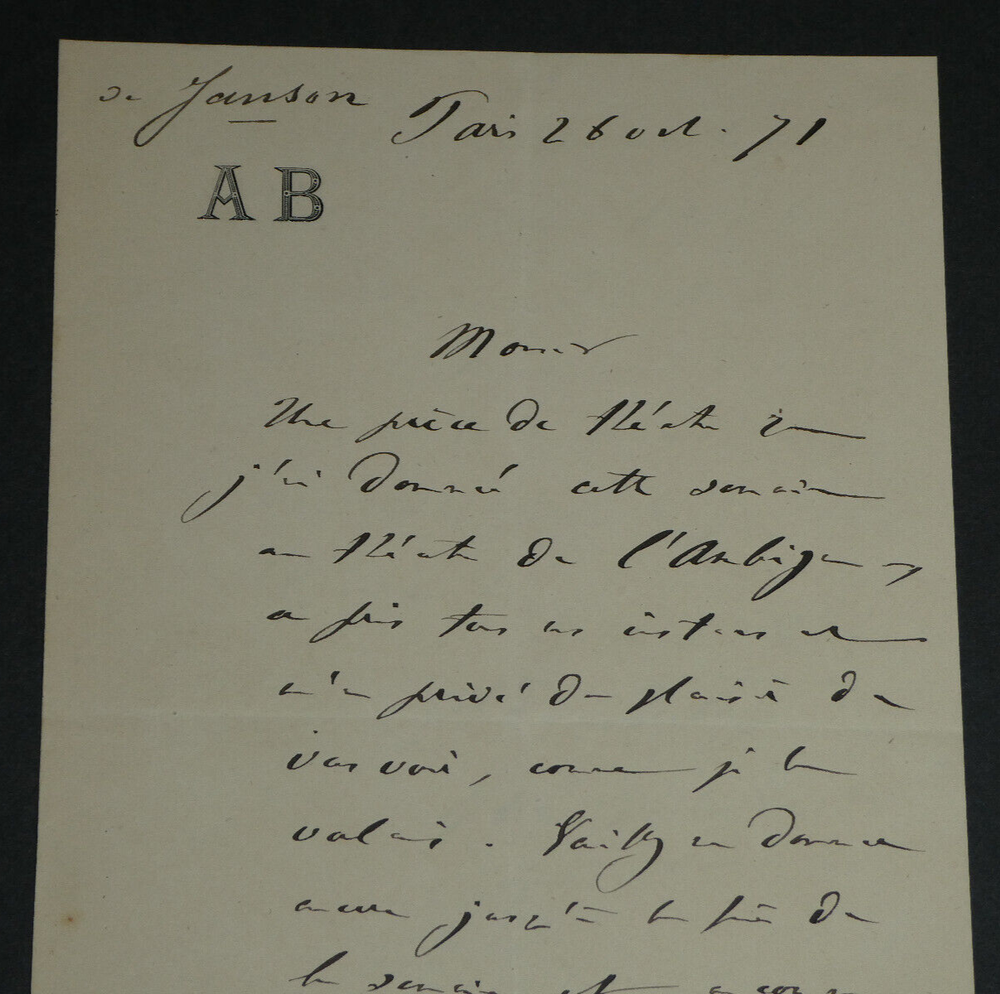 de Janson
Paris 26 oct. 71
A B
Monsieur
Une pièce de théatre que
j'ai donné cette semaine
au théatre de l'Ambigu
a pris tous mes instans et
m'a privé du plaisir de
vous voir, comme je le
voulais. Veuillez me donner
encore jusqu'à la fin de
la semaine et